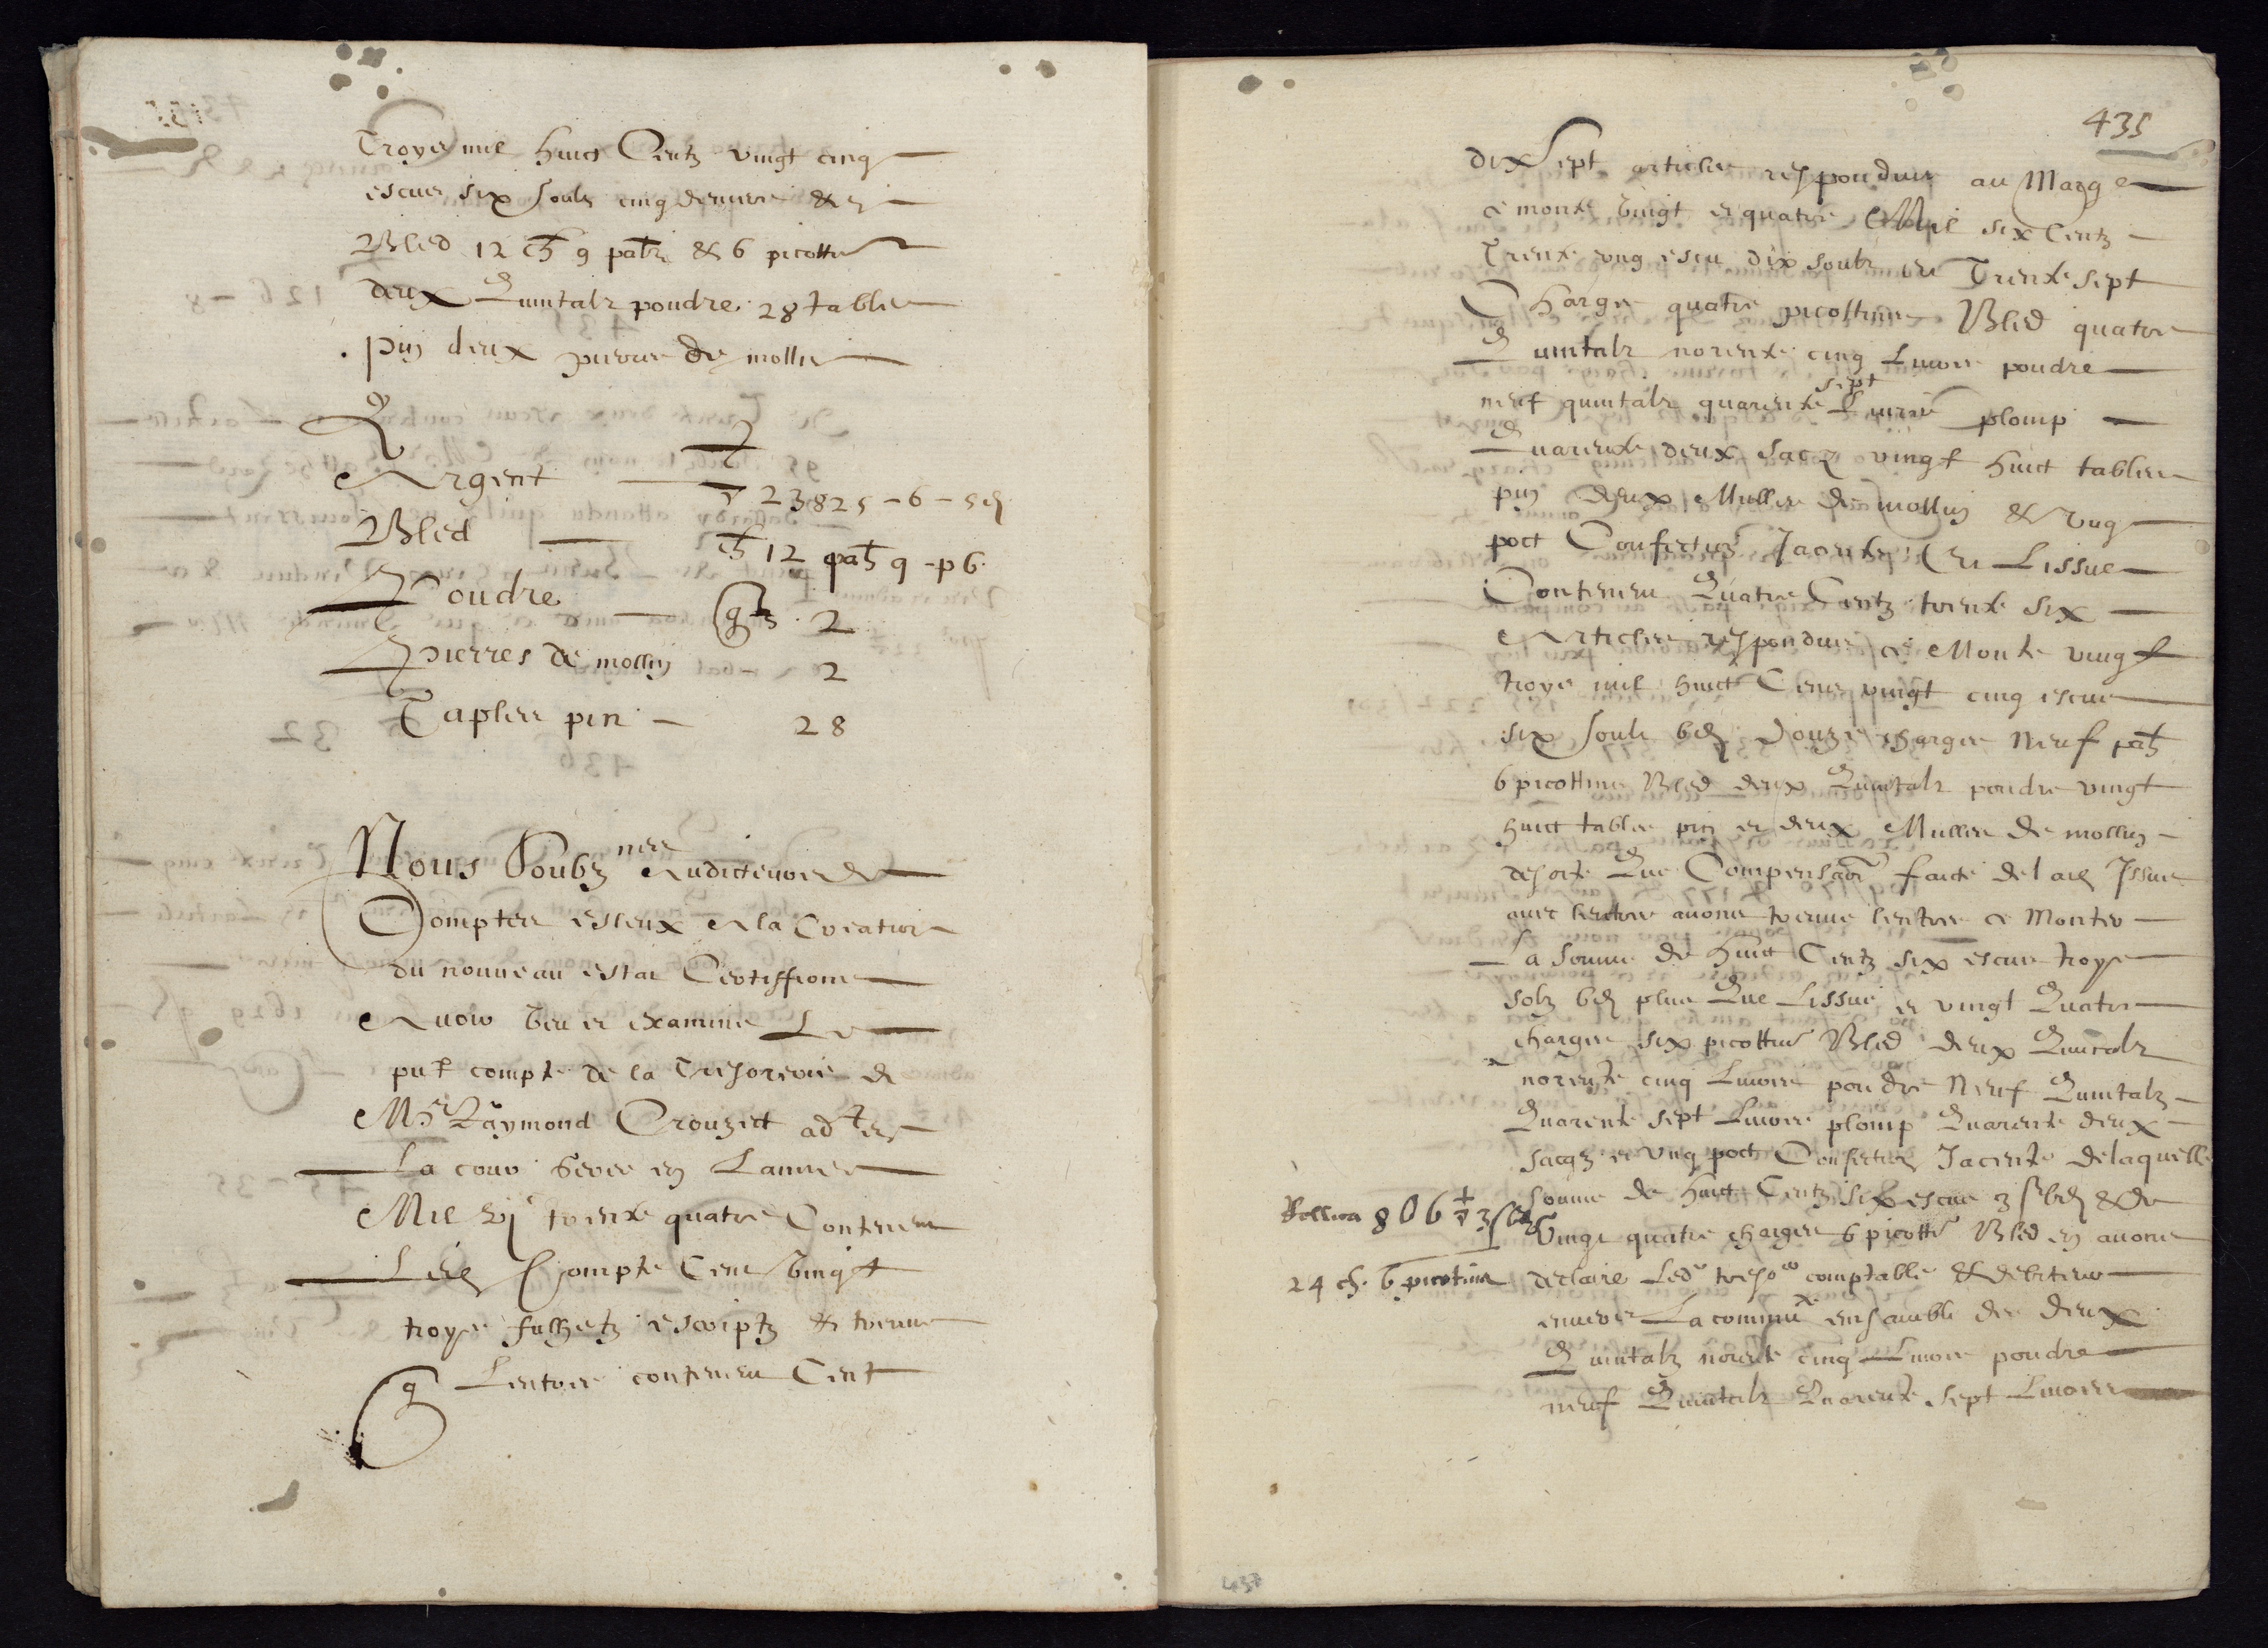 Troys mil huict Centz vingt cinq
escus six soulz cinq deniers &
Bled 12 ch 9 patz & 6 picottins
deux Quintalz poudre 28 tables
pin deux pierres de mollin
Argent 23825 - 6 - 5 d
Bled ch 12 pat 9 - p 6
Poudre qtz 2
Pierres de mollin 2
Taplers pin 28
Nous Soubznes Auditeurs de
Comptes esleux A la Creation
du nouveau estat Certiffions
Avoir veu et examine Le
pnt compte de la Tresorerie de
Mr Raymond Crouzet
La cour
Mil vjc trente quatre Contenent
Led Compte Cent vingt
troys fulhetz escriptz & treuve
q Lentree conteneu Cent
435
dix sept articles respondus au Marge
ce monte vingt et quatre Mil six Centz
Trente ung escu dix soulz et Trente sept
Charges quatre picottins Bled quatre
Quintalz norente cinq Livres poudre
neuf quintalz quarente sept Livres plomp
Quarente deux sacz vingt huict tables
pin deux Mulles de mollin & ung
poct Confection Jacinte Et Lissue
Conteneu Quatre Centz trente six
Articles respondus ce Monte vingt
troys mil huict Cens vingt cinq escus
six soulz 6 d Douze charges Neuf patz
6 picottins Bled deux Quintalz poudre vingt
huict tables pin et deux Mulles de mollin
desorte Que Compensaon faicte de lad Issue
avec lentree avons treuve lentree ce Monter
La somme de huict Centz six escus troys
solz 6 d plus Que Lissue et vingt Quatre
charges six picottins Bled deux Quintalz
norente cinq Livres poudre Neuf Quintalz
Quarente sept Livres plomp Quarente deux
sacqz et ung poct Confection Jacinte delaquelle
somme de huict Centz six escus 3 s 6 d & de
806 3 s
Vingt quatre charges 6 picottins Bled en avons
24 ch. 6 picotins
declaire Led treso comptable & debiteur
envers La commu ensamble de deux
Quintalz norente cinq Livres poudre
neuf Quintalz Quarente sept Livres
437